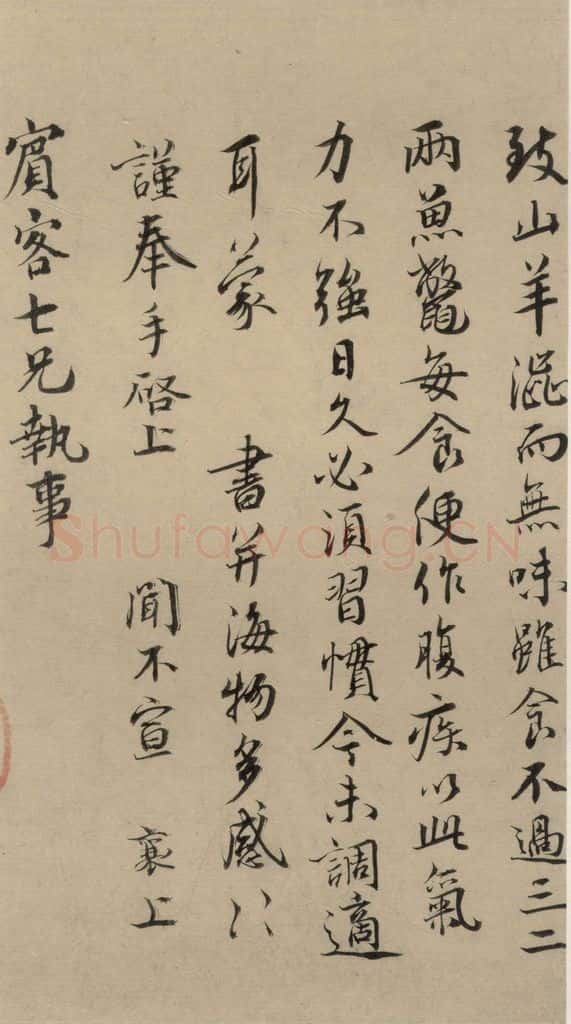 致山羊澁而無味雖食不過三二
兩魚鼈每食便作腹疾以此氣
力不強日久必須習慣今未調適
耳蒙 書并海物多感〻
謹奉手啓上 聞不宣 襄上
賓客七兄執事
Shufawang.CN